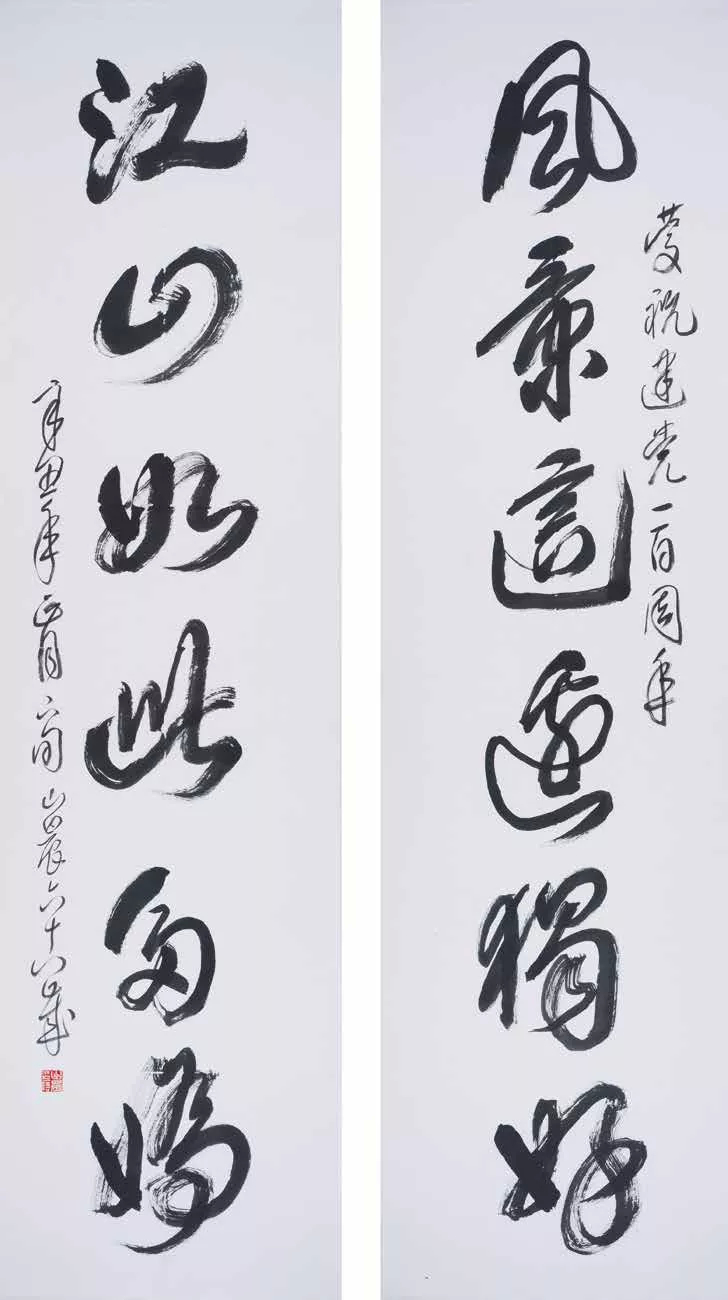 慶祝建党一百周年
風景這邊獨好
江山如此多嬌
辛丑年正月下旬山晨六十八歲